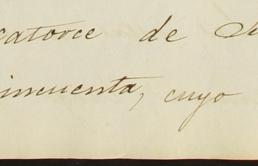 catorce de
incuenta, cuyo